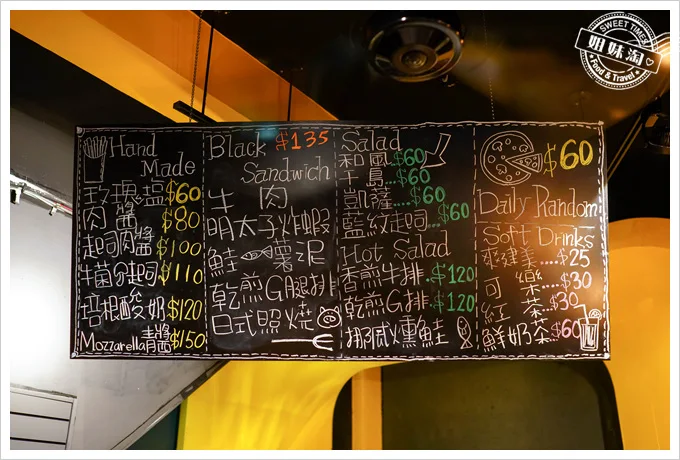 SWEET TIMES
姐妹淘
Food & Travel
Hand
Made
玫瑰塩 $60
肉醬 $80
起司肉醬 $100
牛菌G起司 $110
培根酸奶 $120
Mozzarella青醬 $150
Black $135
Sandwich
牛肉
明太子炸蝦
鮭魚薯泥
乾煎G腿排
日式照燒
Salad
和風 $60
千島...$60
凱薩...$60
藍紋起司...$60
Hot Salad
香煎牛排.$120
乾煎G排.$120
挪威燻鮭
$60
Daily Random
Soft Drinks
來健美.....$25
可樂....$30
紅茶...$30
鮮奶茶..$60